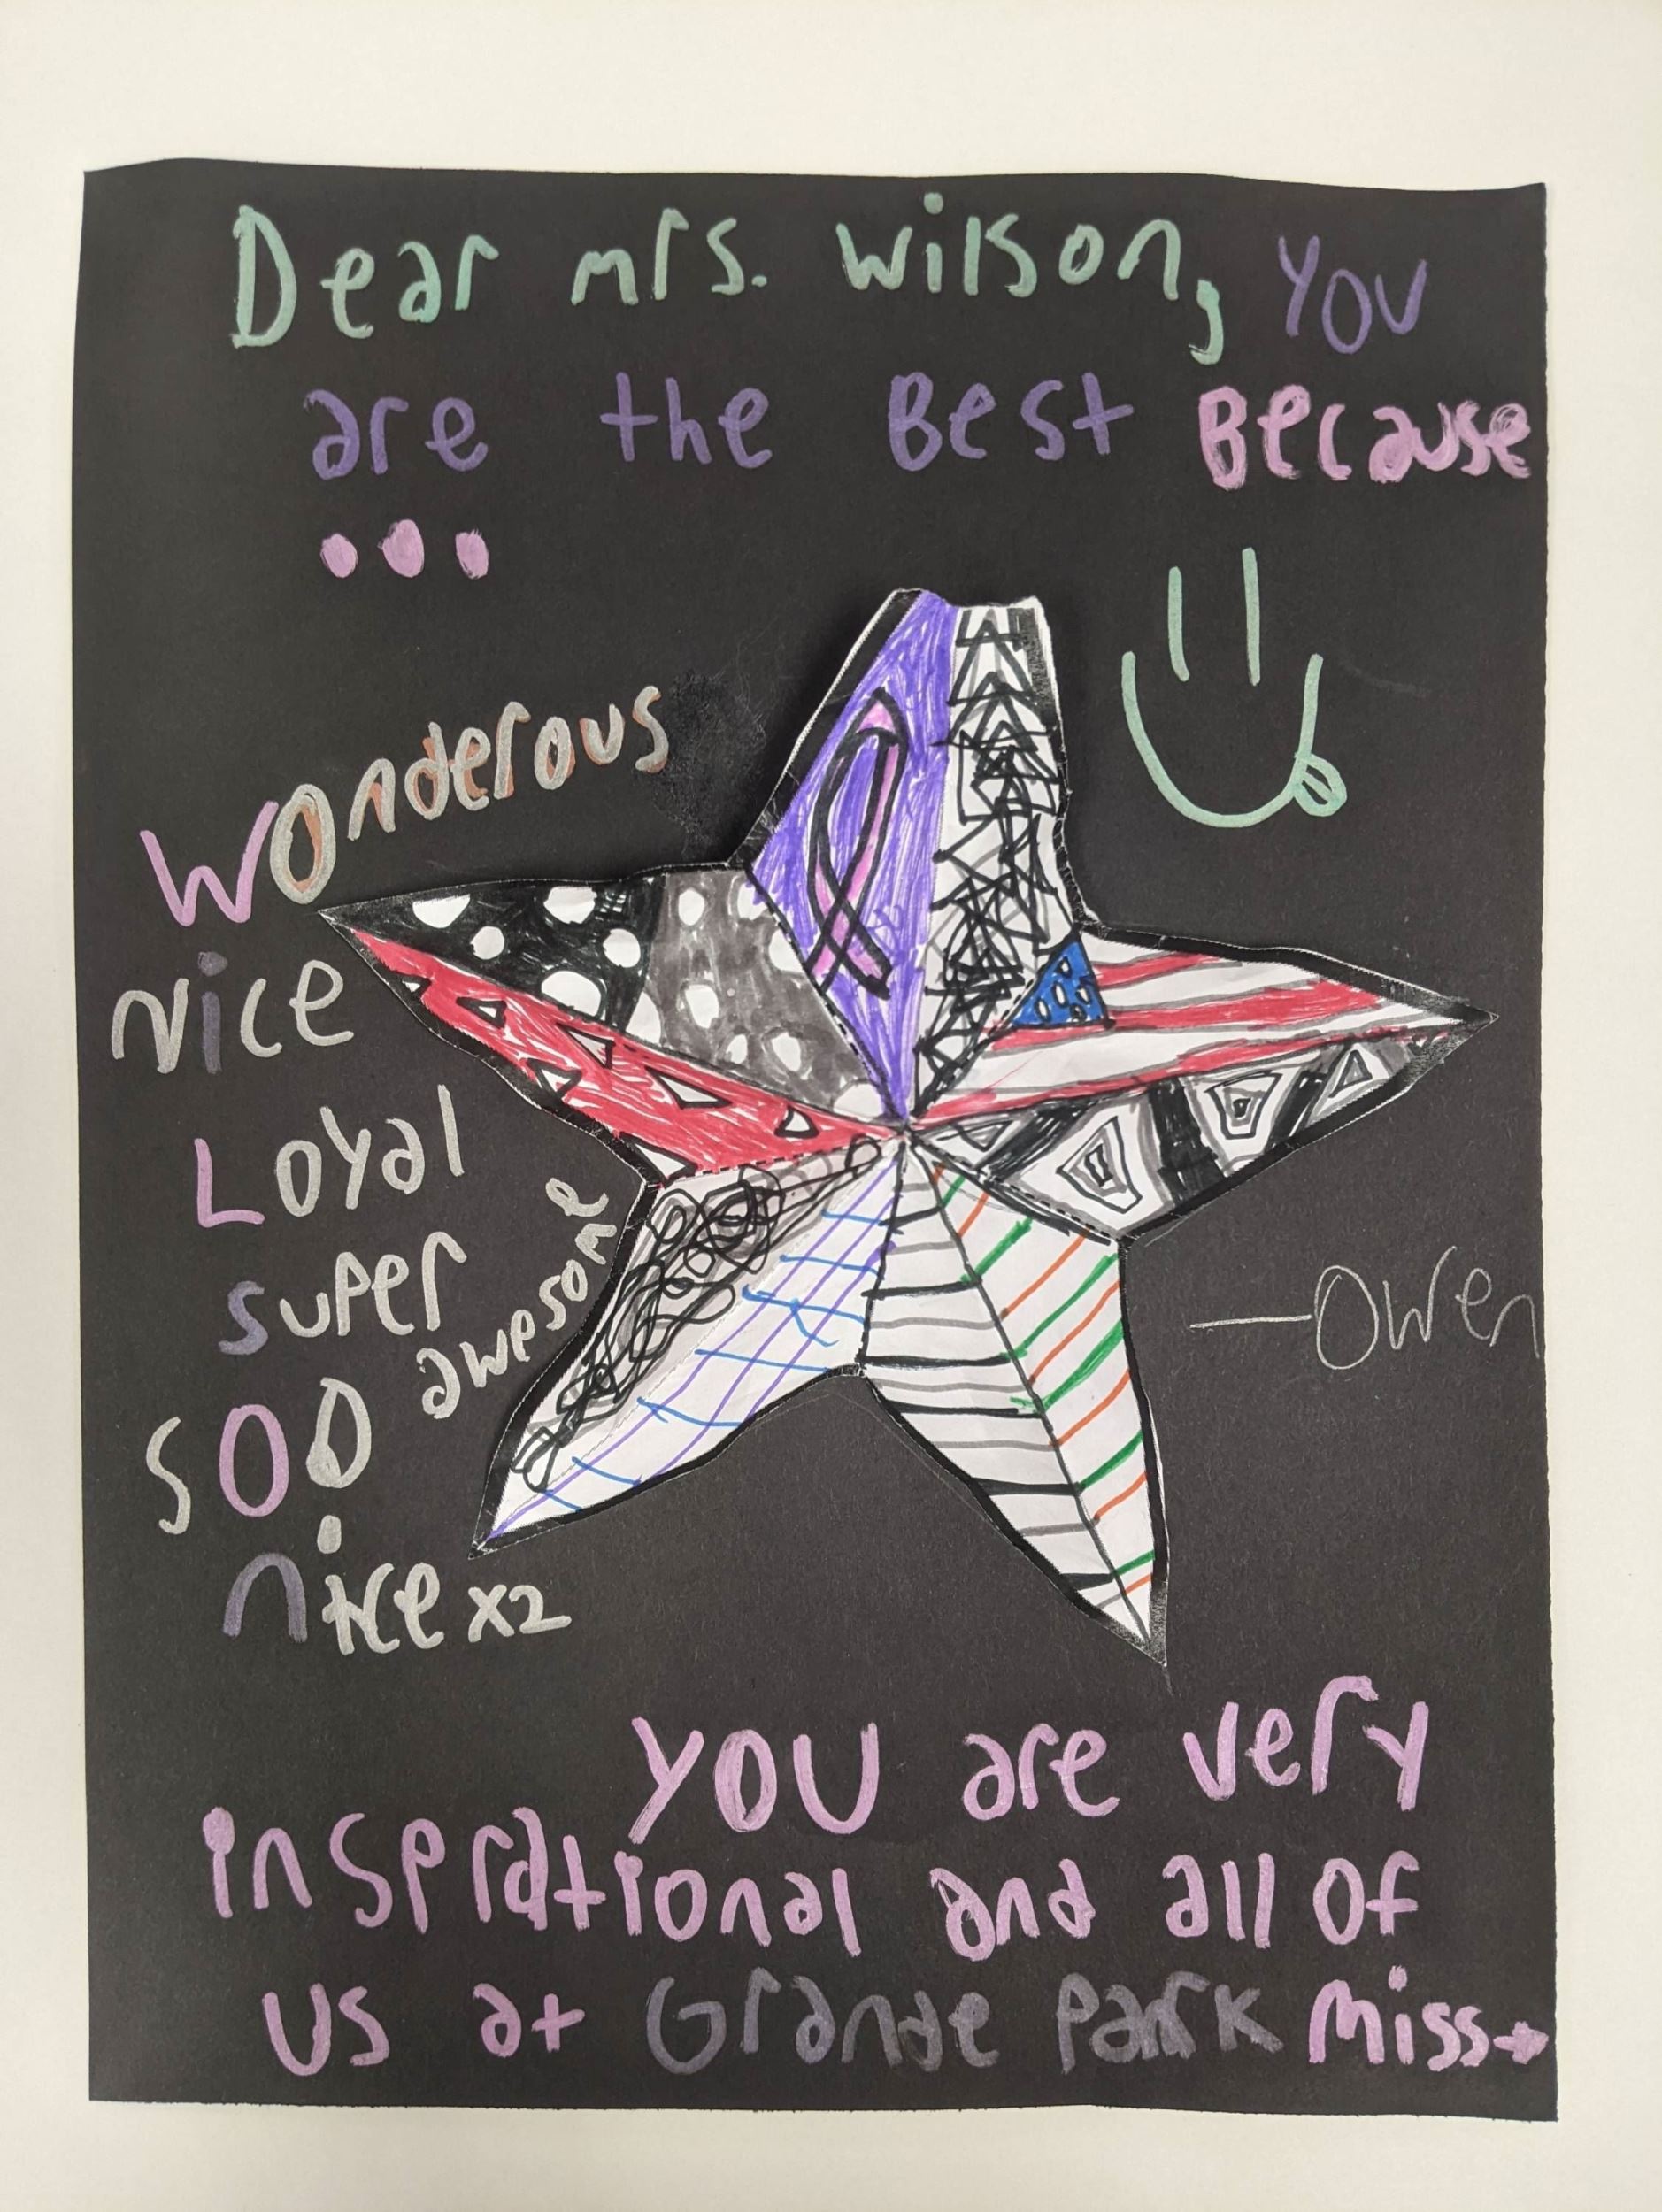 Dear mrs. Wilson, YOU
are the Best Because
...
Wonderous
Nice
Loyal
super
awesome
SOO
nice x2
—Owen
YOU are very
insprational and all of
us at Grande Park Miss→